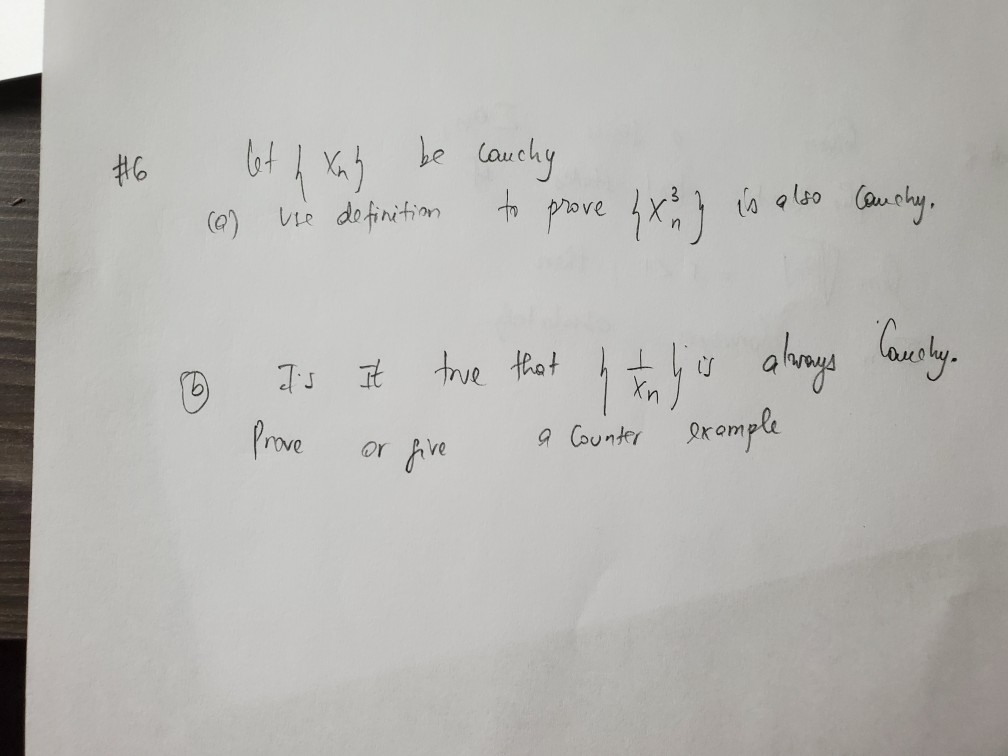 #6 let { Xn} be Cauchy
(a) Use definition to prove {X³n} is also Cauchy.
(b) Is It true that { 1/Xn } is always Cauchy.
Prove or give a Counter example